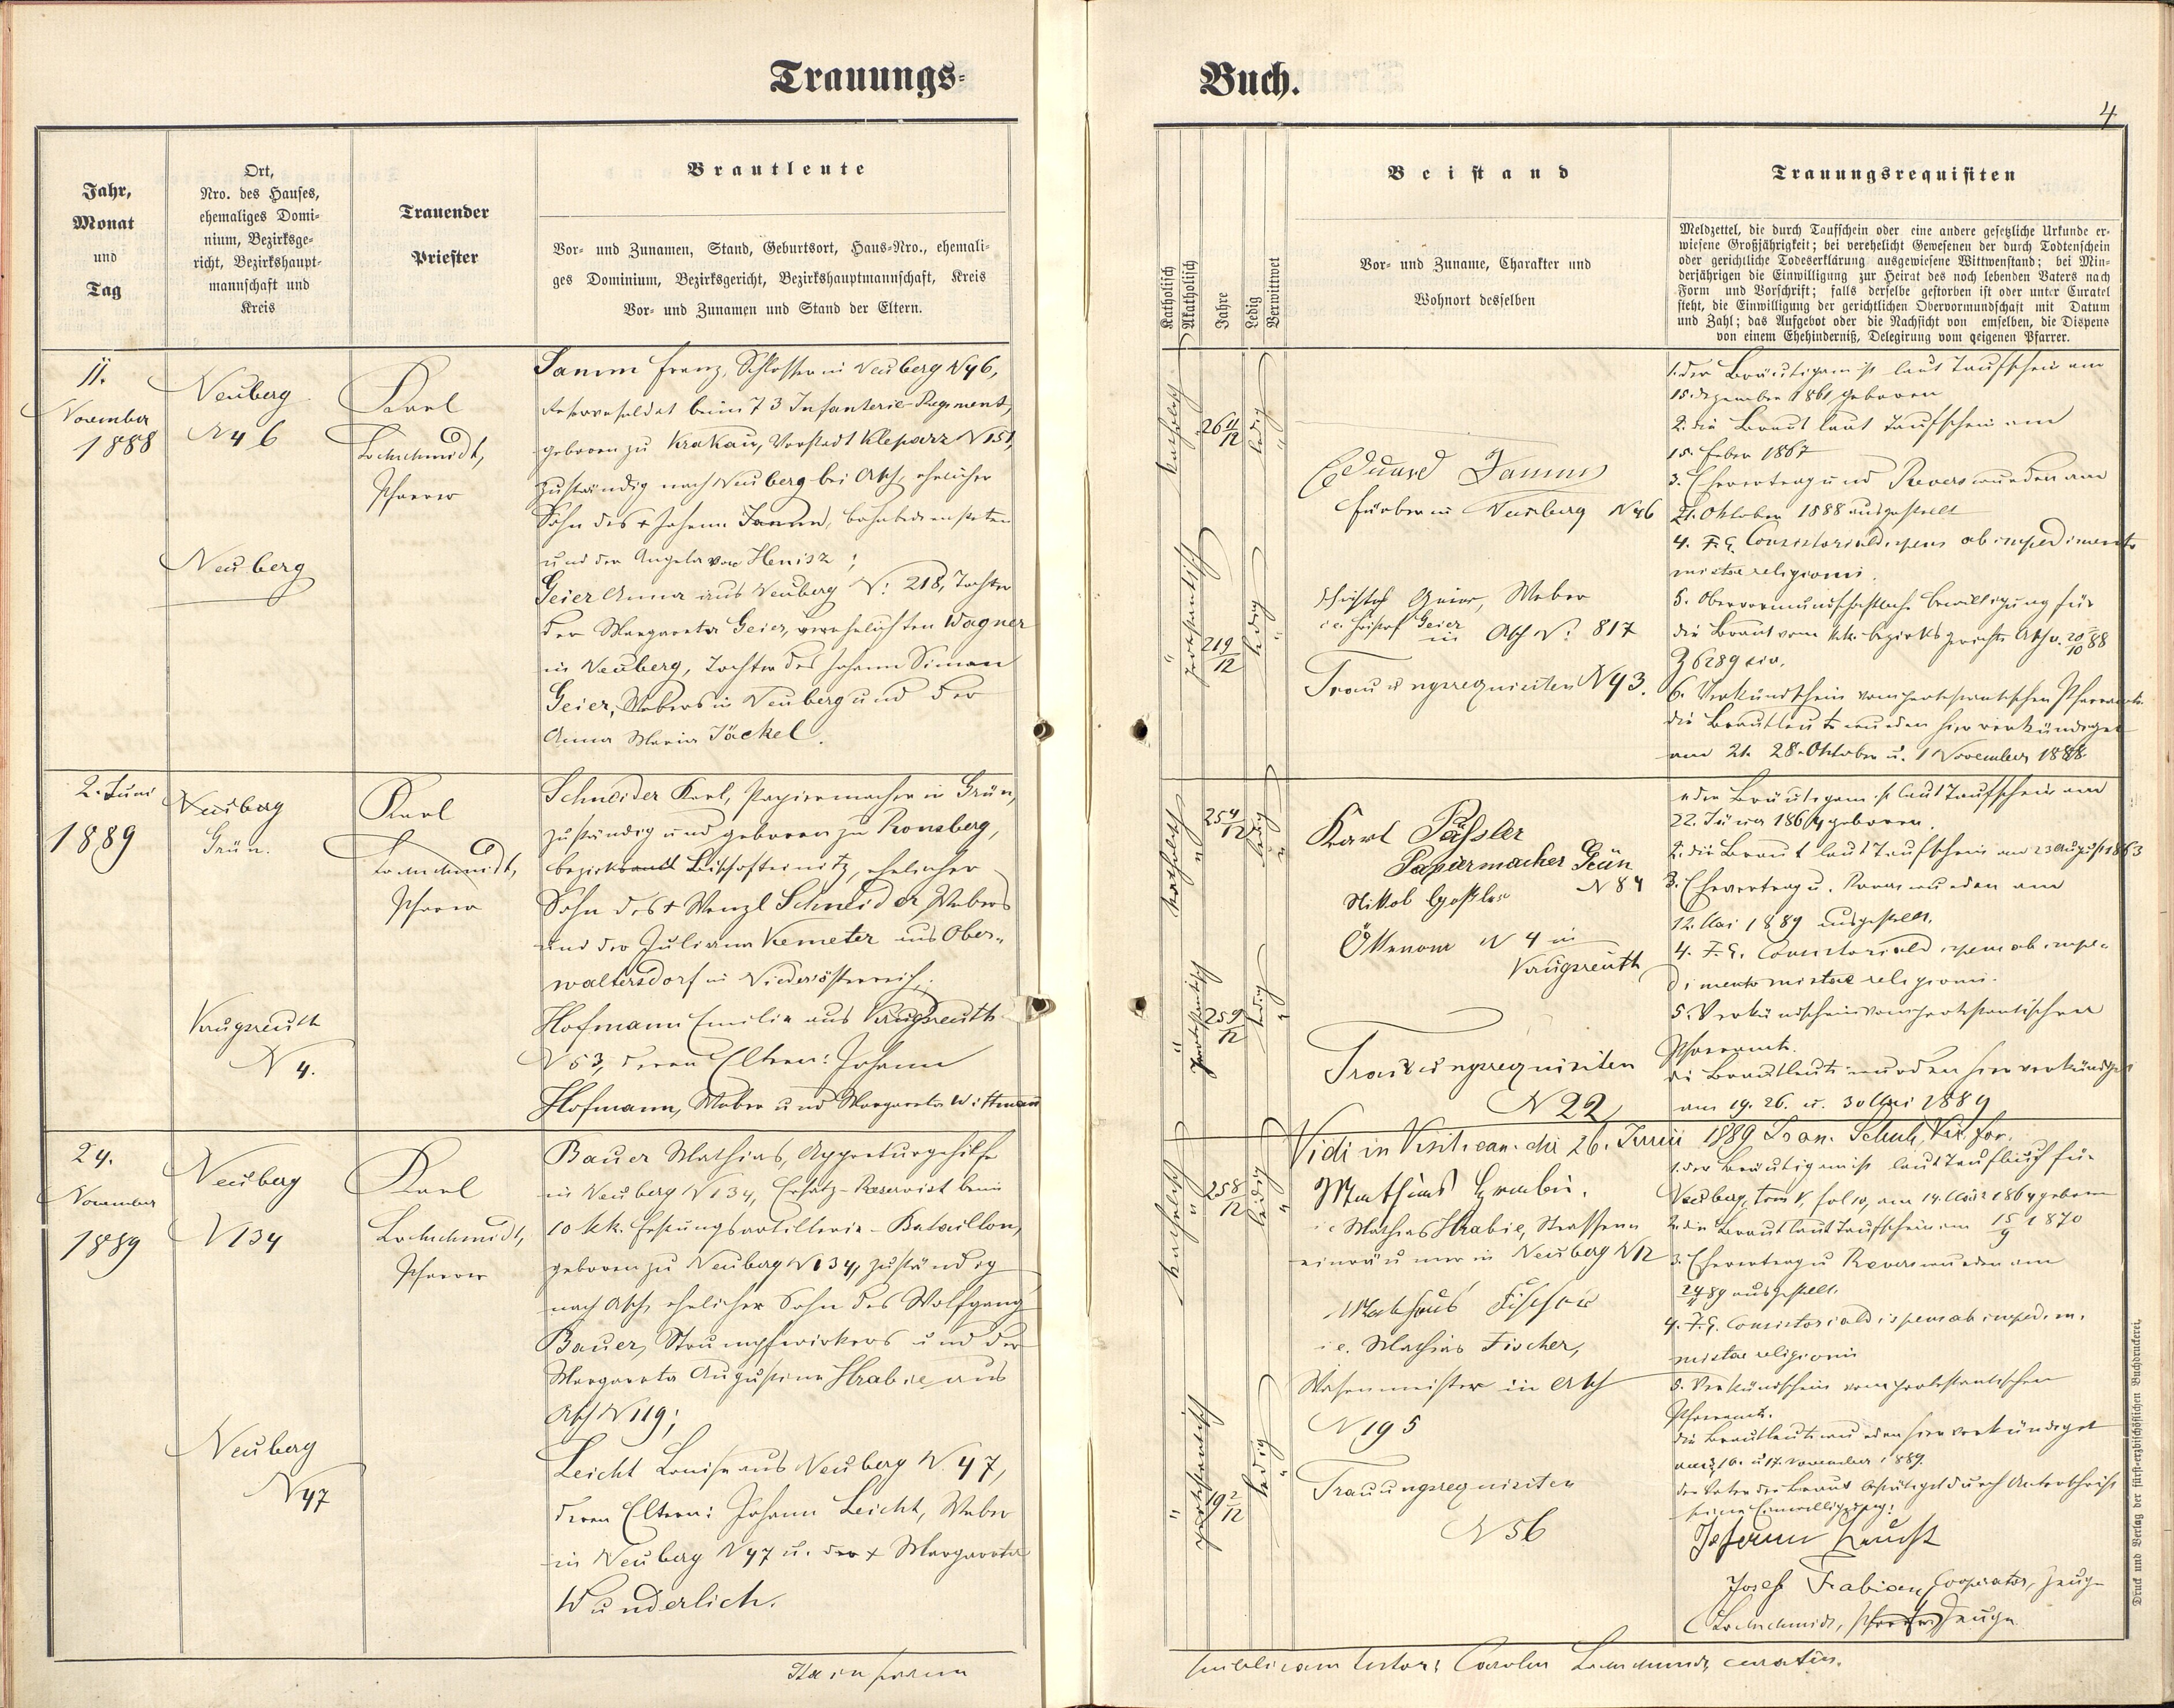 Trauungs-
Buch.
4
Jahr,
Monat
und
Tag
Ort,
Nro. des Hauses,
ehemaliges Domi-
nium, Bezirksge-
richt, Bezirkshaupt-
mannschaft und
Kreis
Trauender
Priester
Brautleute
Vor- und Zunamen, Stand, Geburtsort, Haus-Nro., ehemali-
ges Dominium, Bezirksgericht, Bezirkshauptmannschaft, Kreis
Vor- und Zunamen und Stand der Eltern.
Katholisch
Akatholisch
Jahre
Ledig
Verwittwet
Beistand
Vor- und Zuname, Charakter und
Wohnort desselben
Trauungsrequisiten
Meldzettel, die durch Taufschein oder eine andere gesetzliche Urkunde er-
wiesene Großjährigkeit; bei verehelicht Gewesenen der durch Todtenschein
oder gerichtliche Todeserklärung ausgewiesene Wittwenstand; bei Min-
derjährigen die Einwilligung zur Heirat des noch lebenden Vaters nach
Form und Vorschrift; falls derselbe gestorben ist oder unter Curatel
steht, die Einwilligung der gerichtlichen Obervormundschaft mit Datum
und Zahl; das Aufgebot oder die Nachsicht von emselben, die Dispens
von einem Ehehinderniß, Delegirung vom geigenen Pfarrer.
11.
November
1888
Neuberg
N 46
Neuberg
Karl
Lochschmidt,
Pfarrer
Franz, Schlosser in Neuberg N 46,
Reservesoldat beim 73 Infanterie-Regiment,
geboren zu Krakau, Vorstadt Kleparz N 151,
zuständig nach Neuberg bei Asch, ehelicher
Sohn des + Johann
und der Angela von Henisz;
Geier Anna aus Neuberg N: 218, Tochter
der Margareta Geier, verehelichten Wagner
in Neuberg, Tochter des Johann Simon
Geier, Webers in Neuberg und der
Anna Maria Jäckel.
katholisch
26 11/12
ledig
protestantisch
21 9/12
ledig
Eduard
Färber in Neuberg N 46
Christof Geier, Weber
i.e. Christof Geier
in Asch N: 817
Trauungsrequisiten N 43.
1. der Bräutigam ist laut Taufschein am
15. Dezember 1861 geboren
2. die Braut laut Taufschein am
15. Feber 1867
3. Ehevertrag und Revers wurden am
21. Oktober 1888 ausgestellt
4. F. E. Consistorialdispens ab impedimento
mixtae religionis.
5. Obervormundschaftliche Bewilligung für
die Braut vom k.k. Bezirksgerichte Asch v. 20/10 88
Z 6289 civ.
6. Verkündschein vom protestantischen Pfarramte
die Brautleute wurden hier verkündiget
am 21. 28. Oktober u. 1 November 1888
2. Juni
1889
Neuberg
Grün.
Krugsreuth
N 4.
Karl
Lochschmidt,
Pfarrer
Schneider Karl, Papiermacher in Grün,
zuständig und geboren zu Ronsberg,
Bezirk Bischofteinitz, ehelicher
Sohn des + Wenzl Schneider, Webers
und der Juliana Kemeter aus Ober-
waltersdorf in Niederösterreich;
Hofmann Emilie aus Krugsreuth
N 53, deren Eltern: Johann
Hofmann, Weber und Margareta Wittmann
katholisch
25 4/12
ledig
protestantisch
25 9/12
ledig
Karl Päßler
Papiermacher Grün
N 84
Nikol
Ökkonom N 4 in
Krugsreuth
Trauungsrequisiten
N 22
1. der Bräutigam ist laut Taufschein am
22. Jänner 1864 geboren.
2. die Braut laut Taufschein am 23 August 1863
3. Ehevertrag u. Revers wurden am
12. Mai 1889 ausgestellt.
4. F. E. Consistorialdispens ab impe-
dimento mixtae religionis.
5. Verkündschein vom protestantischen
Pfarramte.
die Brautleute wurden hier verkündiget
am 19. 26. u. 30 Mai 1889
Vidi in Visit. can. die 26. Junii 1889 Fran. Vic. for.
24.
November
1889
Neuberg
N 134
Neuberg
N 47
Karl
Lochschmidt,
Pfarrer
Bauer Mathias, Appreturgehilfe
in Neuberg N 134, Ersatz-Reservist beim
10 k.k. Festungsartillerie-Bataillon,
geboren zu Neuberg N 134, zuständig
nach Asch, ehelicher Sohn des Wolfgang
Bauer, Strumpfwirkers und der
Margareta Augustina Hrabie aus
Asch N 119;
Leicht Louise aus Neuberg N. 47,
deren Eltern: Johann Leicht, Weber
in Neuberg N 47 u. der + Margareta
Wunderlich.
katholisch
25 8/12
ledig
protestantisch
19 2/12
ledig
Mathias
i.e. Mathias Hrabie, Strassen-
einräumer in Neuberg N 12
Mathias Fischer
i.e. Mathias Fischer,
Wasenmeister in Asch
N 195
Trauungsrequisiten
N 56
1. der Bräutigam ist laut Taufbuch für
Neuberg, tom V, fol 10, am 14. März 1864 geboren
2. die Braut laut Taufschein am 15/9 1870
3. Ehevertrag u Revers wurden am
89 ausgestellt.
4. F. E. Consistorialdispens ab impedim.
mixtae religionis
5. Verkündschein vom protestantischen
Pfarramte.
die Brautleute wurden hier verkündiget
am 10. u 17. November 1889.
der Vater der Braut bestätiget durch Unterschrift
seine Einwilligung:
Johann Leucht
Josef Fabian, Cooperator, Zeuge
Lochschmidt, Zeuge
Ita in forma
publicam testor: Carolus Lochschmidt, curatus.
Druck und Verlag der fürst-erzbischöflichen Buchdruckerei,